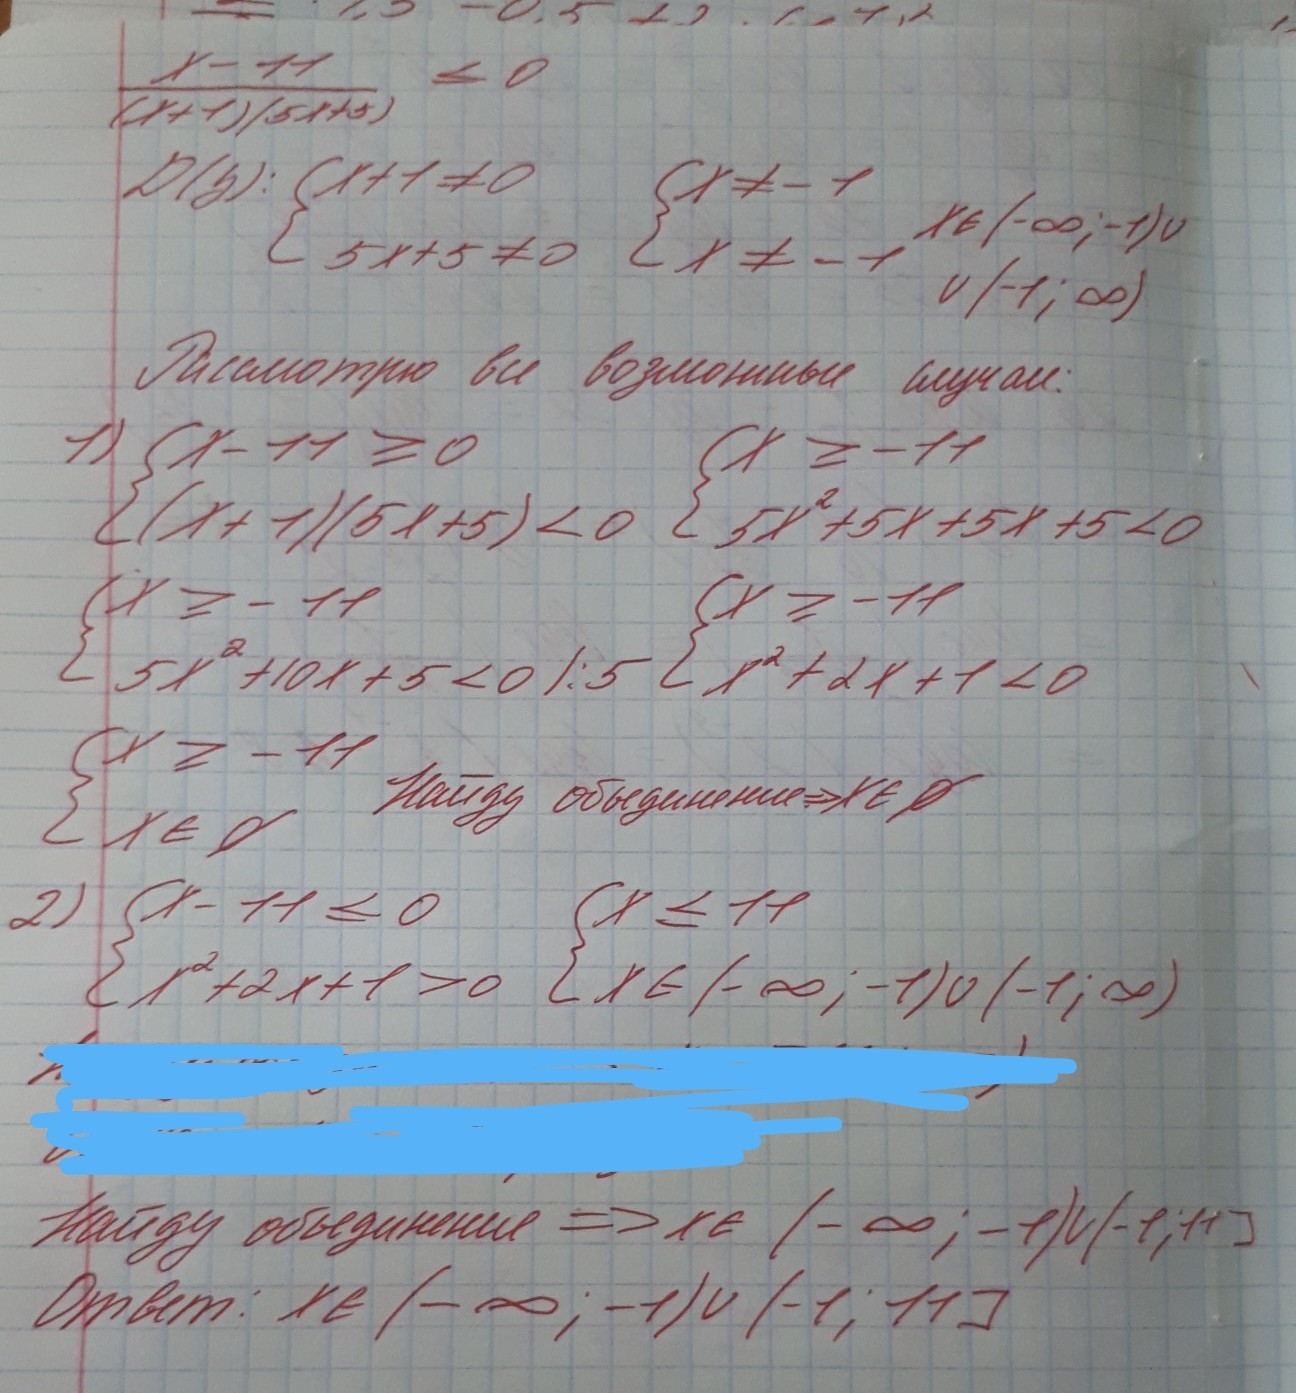 x-11 / (x+1)(5x+5) ≤ 0
D(y): { x+1≠0 { x≠-1
5x+5≠0 x≠-1 x∈(-∞;-1)∪
∪(-1;∞)
Рассмотрю все возможные случаи:
1) { x-11≥0 { x≥-11
(x+1)(5x+5)<0 5x²+5x+5x+5<0
{ x≥-11 { x≥-11
5x²+10x+5<0 /:5 x²+2x+1<0
{ x≥-11
x∈∅ Найду объединение⇒x∈∅
2) { x-11≤0 { x≤11
x²+2x+1>0 x∈(-∞;-1)∪(-1;∞)
Найду объединение => x∈(-∞;-1)∪(-1;11]
Ответ: x∈(-∞;-1)∪(-1;11]